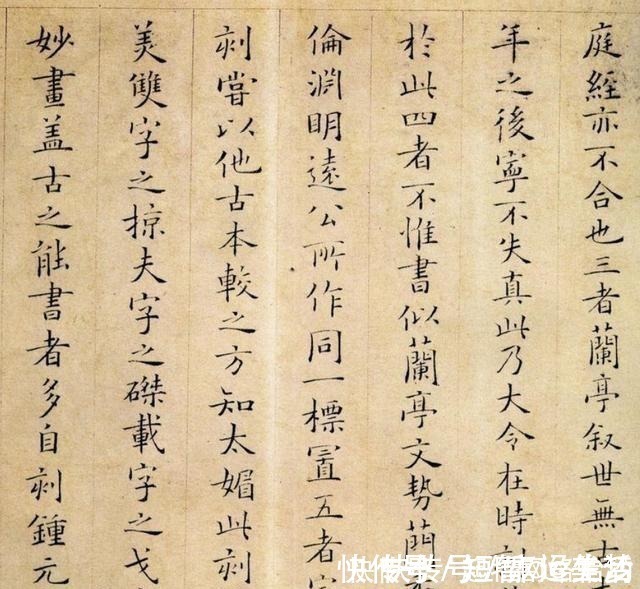 庭經亦不合也三者蘭亭叙世無
年之後寧不失真此乃大令在時
於此四者不惟書似蘭亭文勢蘭
倫淵明遠公所作同一標置五者
刻嘗以他古本較之方知太媚此刻
美雙字之掠夫字之磔載字之戈
妙畫盖古之能書者多自刻鍾元